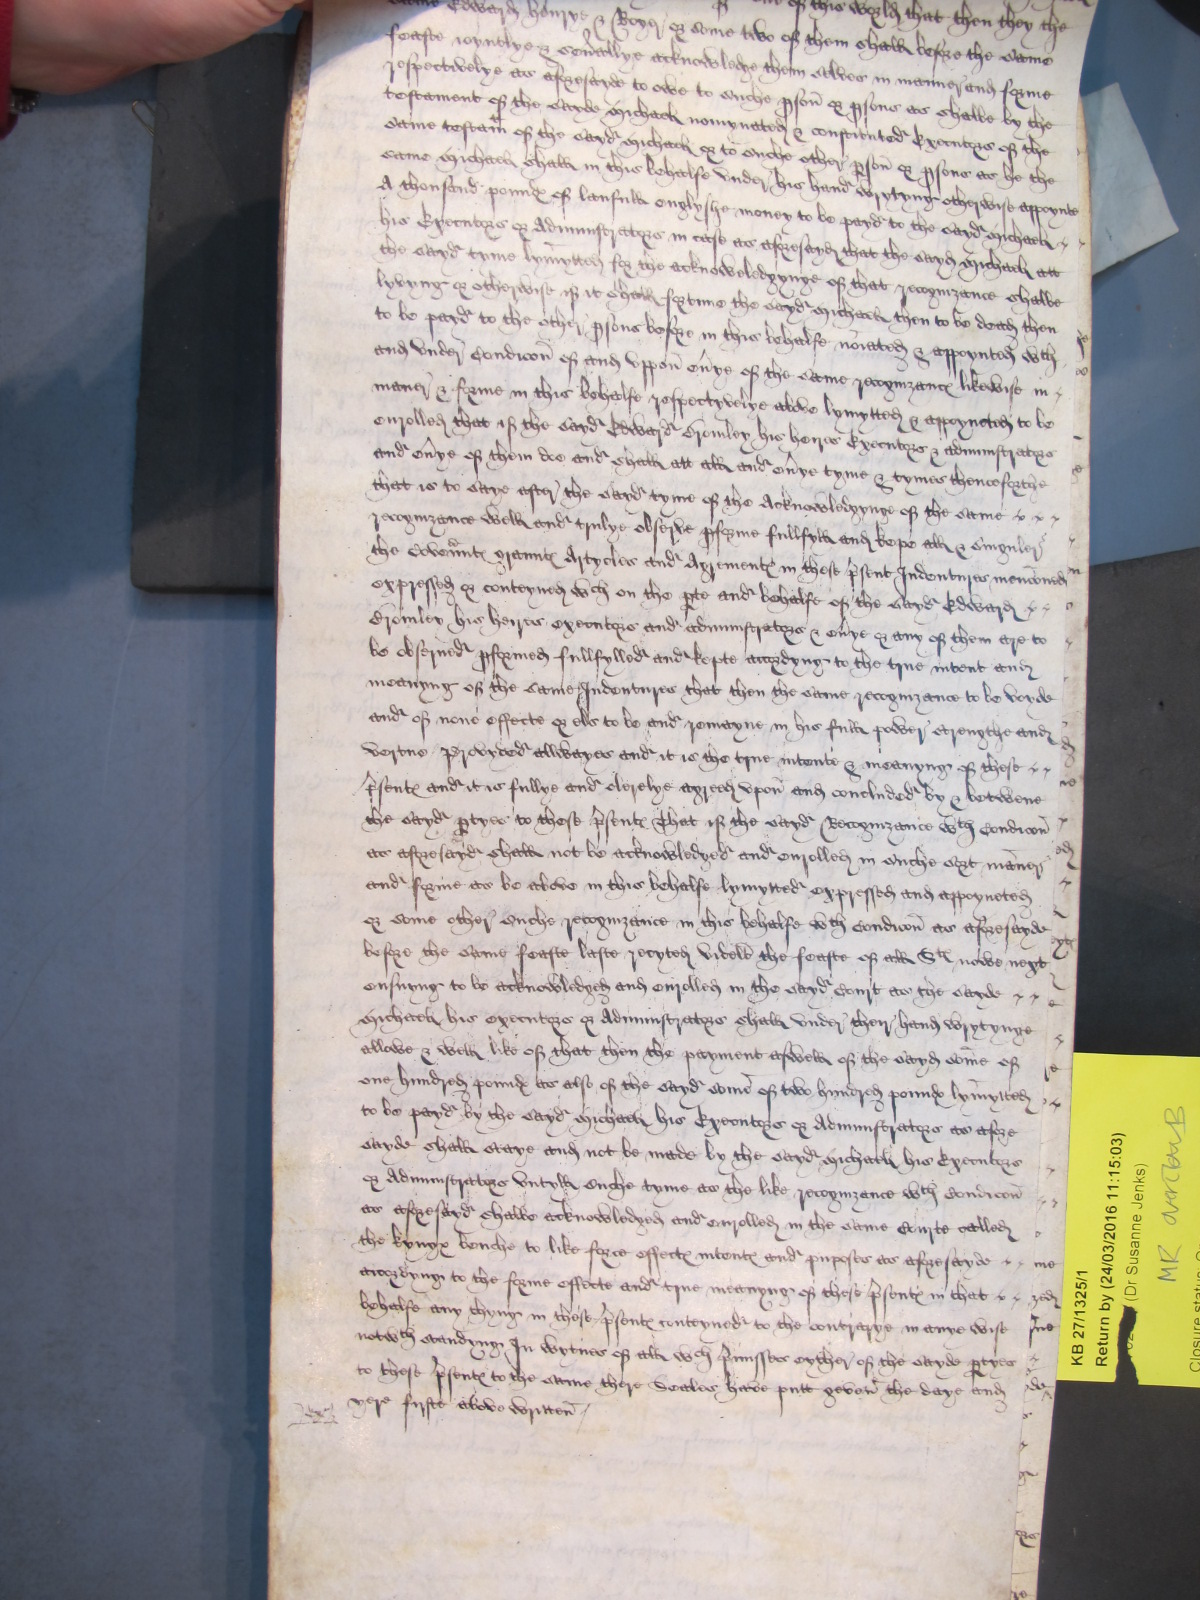 same Edward Henrye & Roger or some two of them shall before the same
feaste ioyntlye & seu'allye acknowledge them selves in manner and forme
respectivelye as aforesayde to owe to suche pson or psons as shalbe by the
testament of the sayde Michaell nomynated & constituted Executors of the
same testamt of the sayd Michaell or to suche other pson or psons as he the
same Michaell shall in this behalfe vnder his hand wrytyng otherwise appoynte
A thousand poundes of laufull englysshe money to be payd to the sayd Michaell
his Executors or Administrators in case as aforesayd that the sayd Michaell att
the sayd tyme lymytted for the acknowledgynge of that recognizance shalbe
lyvyng or otherwise if it shall fortune the sayd Michaell then to be dead then
to be payd to the other psons before in this behalfe noiated & appoynted wth
and vnder Condicon of and vppon eu'ye of the same recognizances likewise in
maner & forme in this behalfe respectyvelye above lymytted & appoynted to be
enrolled that if the sayd Edward Bromley his heires Executors & administrators
and eu'ye of them doe and shall att all and eu'ye tyme & tymes thenceforthe
that is to saye after the sayd tyme of the Acknowledgynge of the same
recognizance well and trulye observe pforme fullfyll and kepe all & singuler
the Covennts graunts Artycles and Agrements in these psent Indentures mencioned
expressed or conteyned wch on the pte and behalfe of the sayd Edward
Bromley his heires executors and administrators & eu'ye or any of them are to
be observed pformed fullfylled and kepte accordyng to the true intent and
meanyng of the same Indentures that then the same recognizance to be voyde
and of none effecte or els to be and remayne in his full power strengthe and
vertue Provyded allwayes and it is the true intente & meanyng of these
psents and it is fullye and clerelye agreed vpon and concluded by & betwene
the sayd ptyes to these psents That if the sayd Recognizance wth Condicon
as aforesayd shall not be acknowledged and enrolled in suche sort maner
and forme as be above in this behalfe lymytted expressed and appoynted
or some other suche recognizance in this behalfe wth Condicon as aforesayde
before the same feaste laste recyted videlt the feaste of all Sts nowe next
ensuyng to be acknowledged and enrolled in the sayd Court as the sayde
Michaell his executors or Administrators shall vnder their hand wrytynge
allowe & well like of that then the payment aswell of the sayd some of
one hundred poundes as also of the sayd some of two hundred poundes lymytted
to be payd by the sayd Michaell his Executors or Administrators as afore
sayde shall staye and not be made by the sayd Michaell his Executors
or Administrators vntyll suche tyme as the like recognizance wth Condicon
as aforesayd shalbe acknowledged and enrolled in the same Courte called
the kynges benche to like force effects intents and puposes as aforesayde
accordyng to the forme effecte and true meanyng of these psents in that
behalfe any thyng in these psents conteyned to the contrarye in anye wise
notwthstandyng In wytnes of all wch pmisses eyther of the sayde ptyes
to these psents to the same there Seales have putt geven the daye and
yere firste above written
KB 27/1325/1
Return by (24/03/2016 11:15:03)
(Dr Susanne Jenks)
MR